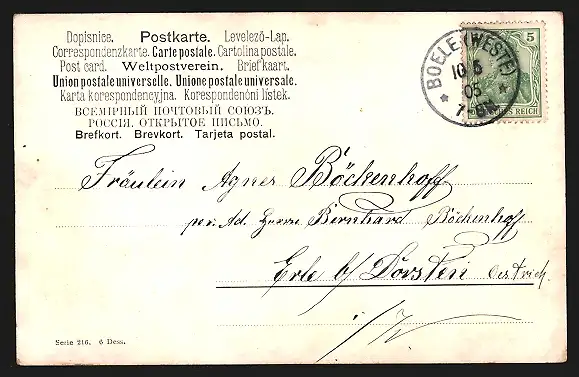 Dopisnice. Postkarte. Levelező-Lap.
Correspondenzkarte. Carte postale. Cartolina postale.
Post card. Weltpostverein. Briefkaart.
Union postale universelle. Unione postale universale.
Karta korespondencyjna. Korespondenční lístek.
ВСЕМІРНЫЙ ПОЧТОВЫЙ СОЮЗЪ.
РОССІЯ. ОТКРЫТОЕ ПИСЬМО.
Brefkort. Brevkort. Tarjeta postal.
5
BOELE (WESTF)
10 6
05
REICH
Fräulein Agnes Böckenhoff
per. Ad. Herrn Bernhard Böckenhoff
Erle b/ Dorsten Oestrich
i/W
Serie 216. 6 Dess.